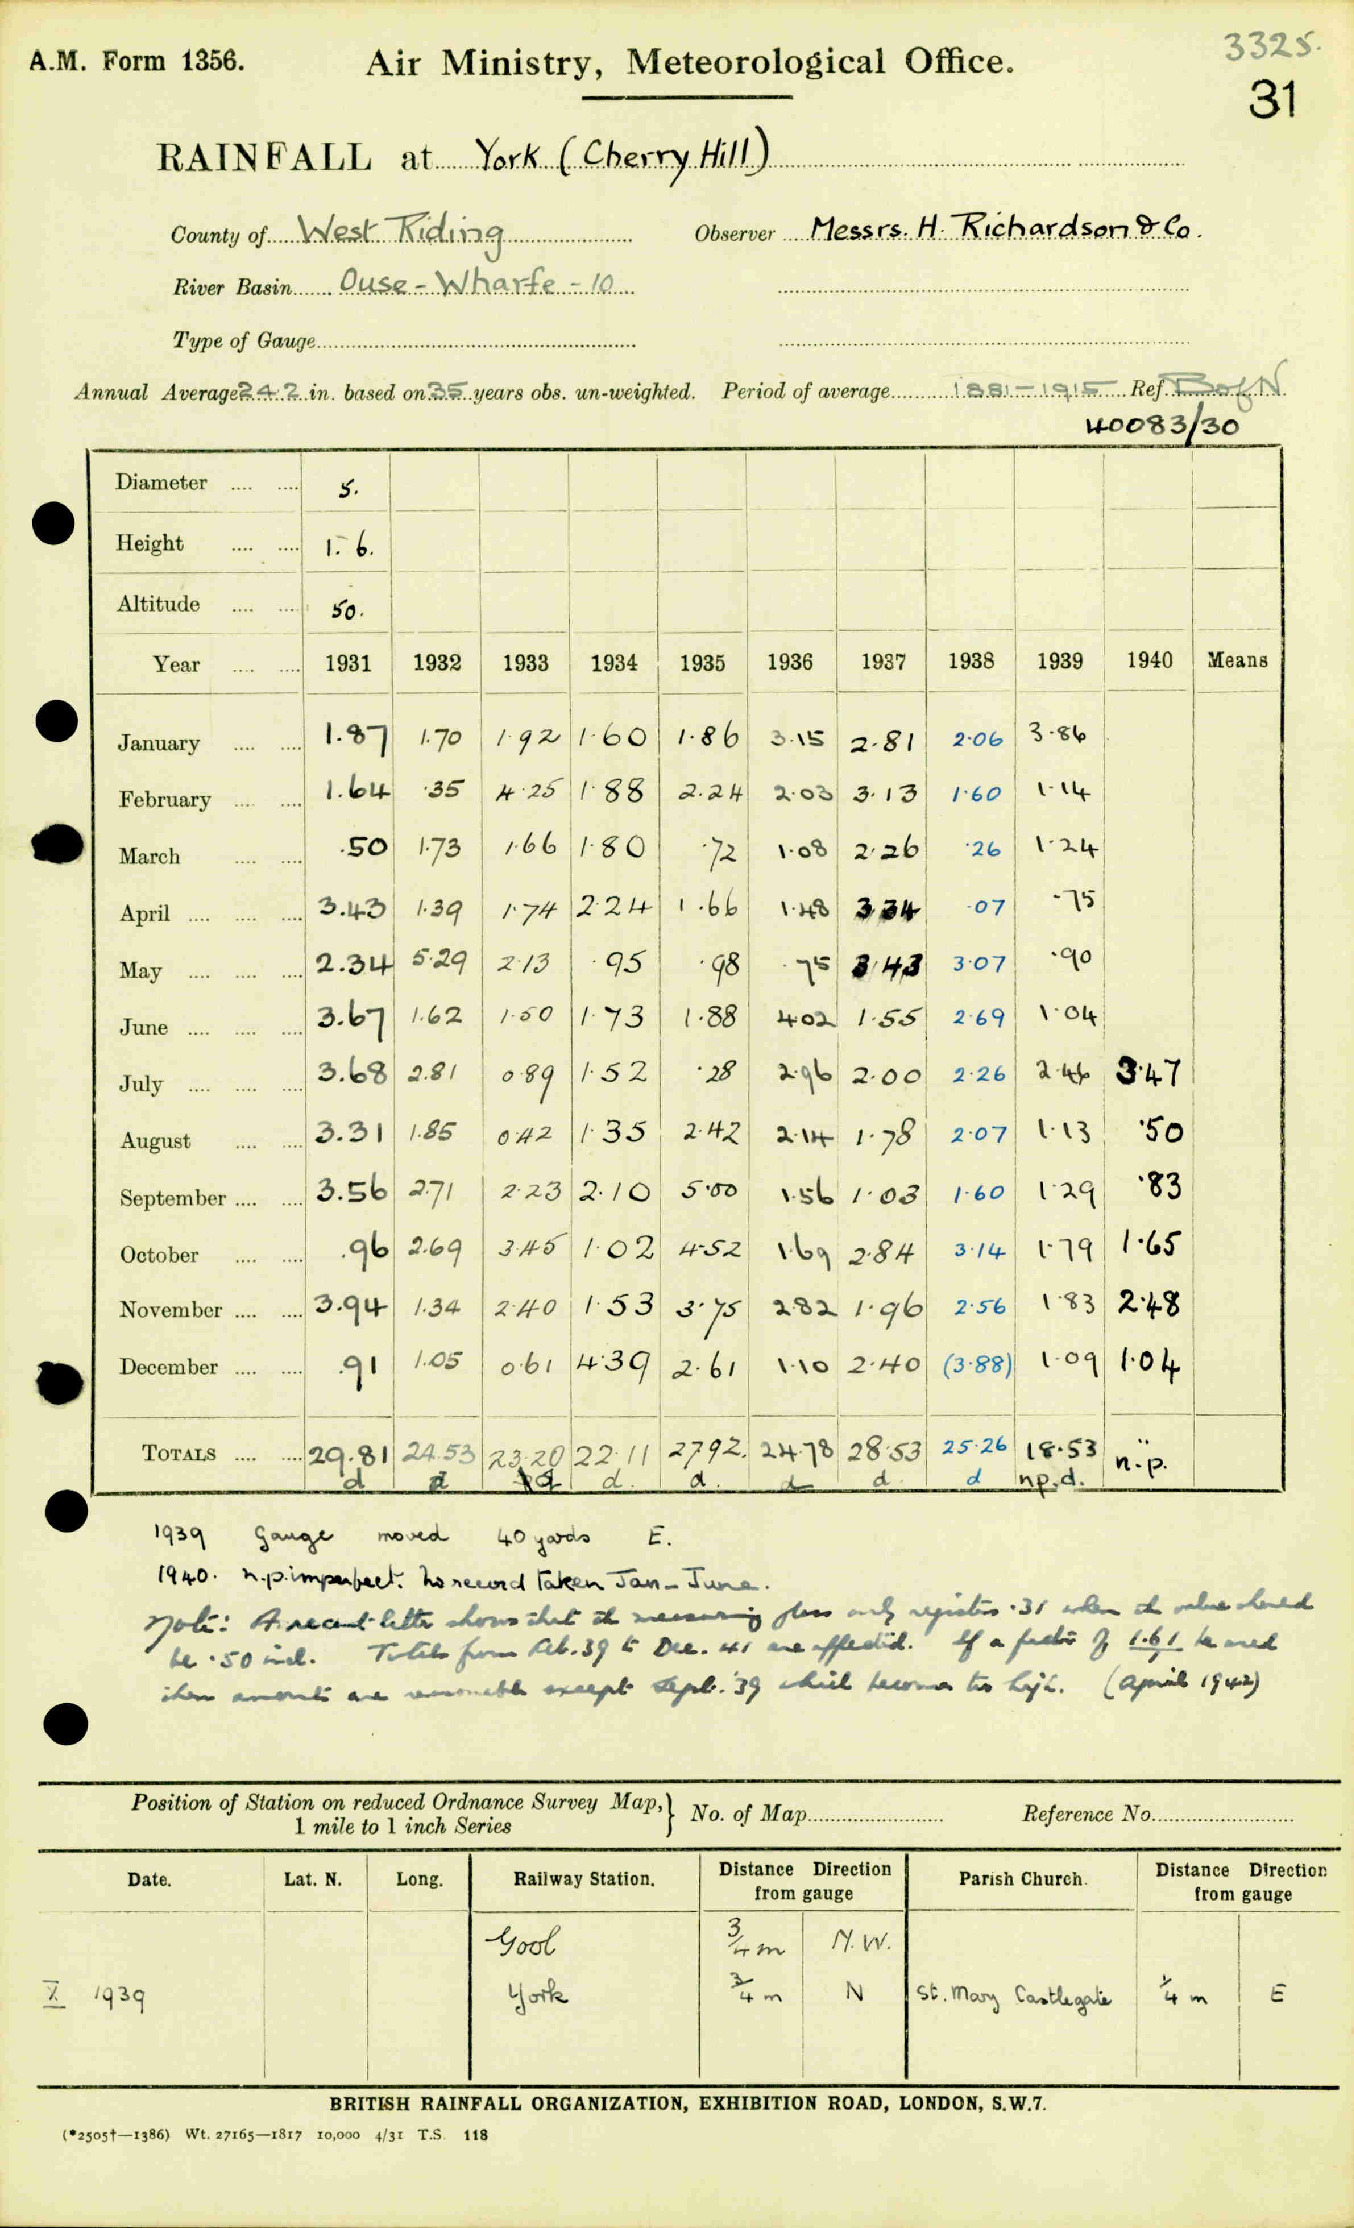 3325.
A.M. Form 1356. Air Ministry, Meteorological Office.
31
RAINFALL at York (Cherry Hill)
County of West Riding Observer Messrs. H. Richardson & Co.
River Basin Ouse - Wharfe - 10
Type of Gauge
Annual Average 24.2 in. based on 35 years obs. un-weighted. Period of average 1881-1915 Ref. B of N.
40083/30
Diameter 5.
Height 1. 6.
Altitude 50.
Year 1931 1932 1933 1934 1935 1936 1937 1938 1939 1940 Means
January 1.87 1.70 1.92 1.60 1.86 3.15 2.81 2.06 3.86
February 1.64 .35 4.25 1.88 2.24 2.03 3.13 1.60 1.14
March .50 1.73 1.66 1.80 .72 1.08 2.26 .26 1.24
April 3.43 1.39 1.74 2.24 1.66 1.48 3.34 .07 .75
May 2.34 5.29 2.13 .95 .98 .75 3.43 3.07 .90
June 3.67 1.62 1.50 1.73 1.88 4.02 1.55 2.69 1.04
July 3.68 2.81 0.89 1.52 .28 2.96 2.00 2.26 2.46 3.47
August 3.31 1.85 0.42 1.35 2.42 2.14 1.78 2.07 1.13 .50
September 3.56 2.71 2.23 2.10 5.00 1.56 1.03 1.60 1.29 .83
October .96 2.69 3.45 1.02 4.52 1.69 2.84 3.14 1.79 1.65
November 3.94 1.34 2.40 1.53 3.75 2.82 1.96 2.56 1.83 2.48
December .91 1.05 0.61 4.39 2.61 1.10 2.40 (3.88) 1.09 1.04
TOTALS 29.81 24.53 23.20 22.11 27.92. 24.78 28.53 25.26 18.53 n.p.
d d d d. d. d d. d np.d.
1939 Gauge moved 40 yards E.
1940. n.p. imperfect. No record taken Jan - June.
Note: A recent letter shows that the measuring glass only registers .31 when the value should
be .50 incl. Totals from Feb. 39 to Dec. 41 are affected. If a factor of 1.61 be used
then amounts are reasonable except Sept. '39 which becomes too high. (April 1942)
Position of Station on reduced Ordnance Survey Map, } No. of Map Reference No.
1 mile to 1 inch Series
Date. Lat. N. Long. Railway Station. Distance Direction from gauge Parish Church. Distance Direction from gauge
Gool 3/4 m N.W.
X 1939 York 3/4 m N St. Mary Castlegate 1/4 m E
BRITISH RAINFALL ORGANIZATION, EXHIBITION ROAD, LONDON, S.W.7.
(*2505†—1386) Wt. 27165—1817 10,000 4/31 T.S. 118